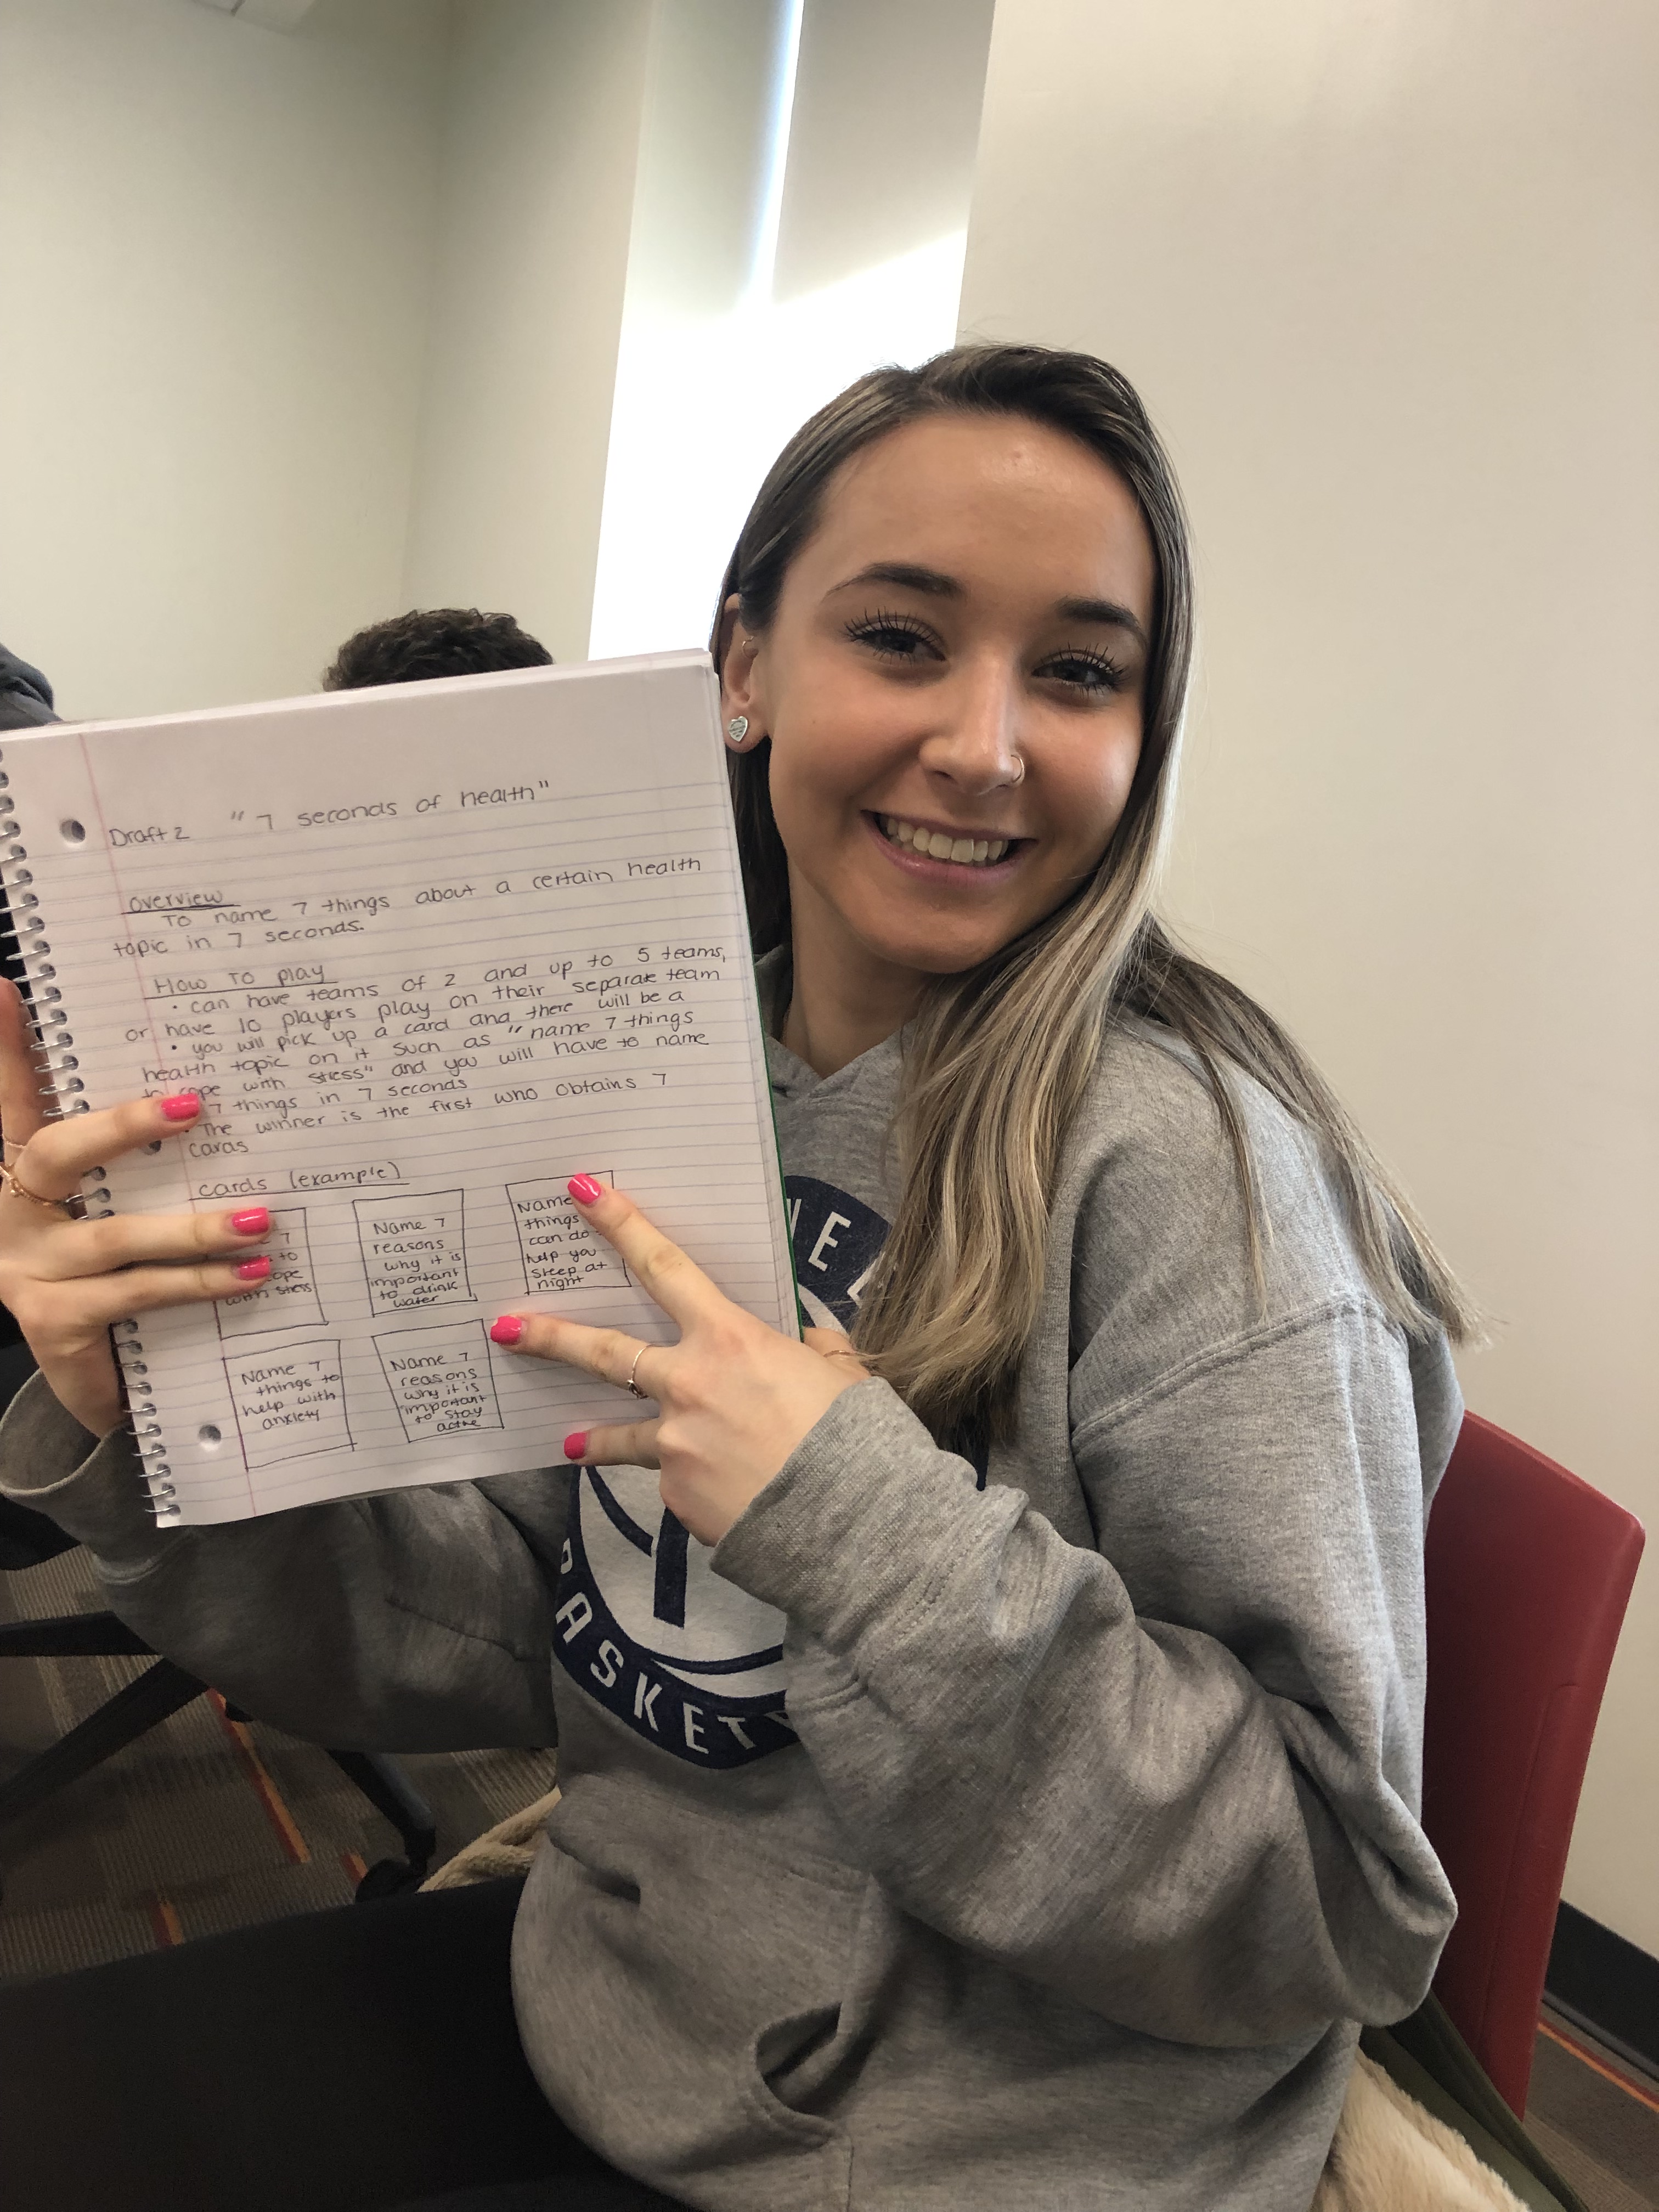 Draft 2 "7 seconds of health"
overview
To name 7 things about a certain health
topic in 7 seconds.
How To play
• can have teams of 2 and up to 5 teams,
or have 10 players play on their separate team
• you will pick up a card and there will be a
health topic on it such as "name 7 things
to cope with stress" and you will have to name
7 things in 7 seconds
• The winner is the first who obtains 7
cards
cards (example)
7
to
cope
with stress
Name 7
reasons
why it is
important
to drink
water
Name
things
can do
help you
sleep at
night
Name 7
things to
help with
anxiety
Name 7
reasons
why it is
important
to stay
active
BASKET